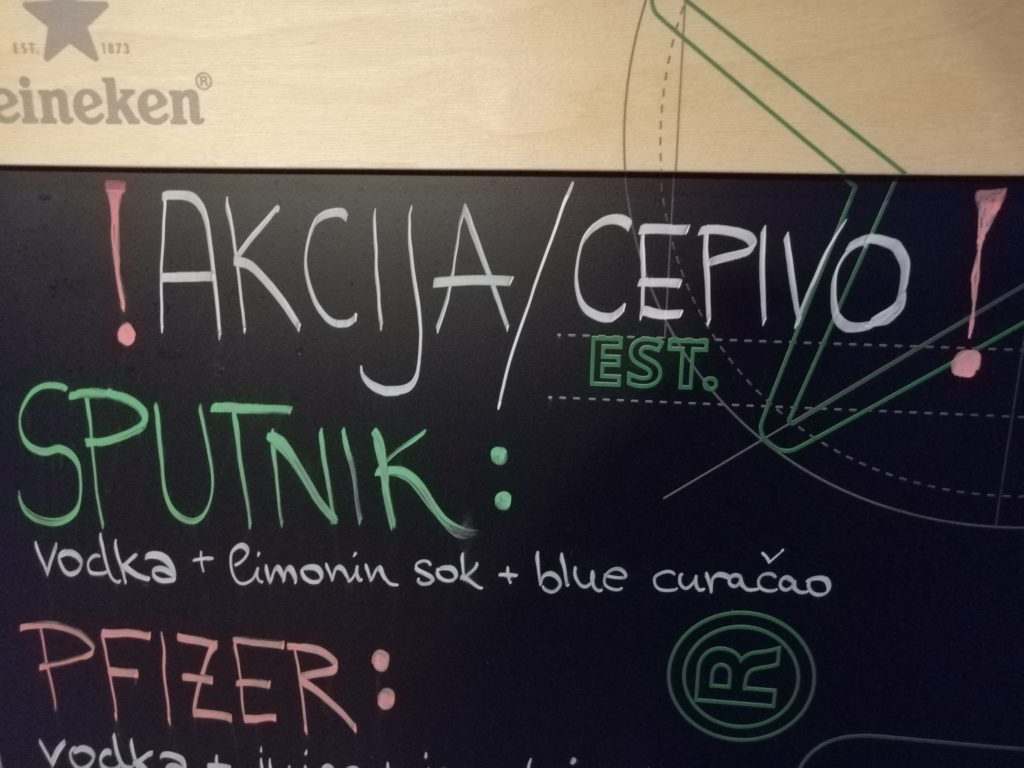 EST. 1873
eineken®
! AKCIJA/CEPIVO !
EST.
SPUTNIK:
vodka + limonin sok + blue curačao
®
PFIZER:
vodka +